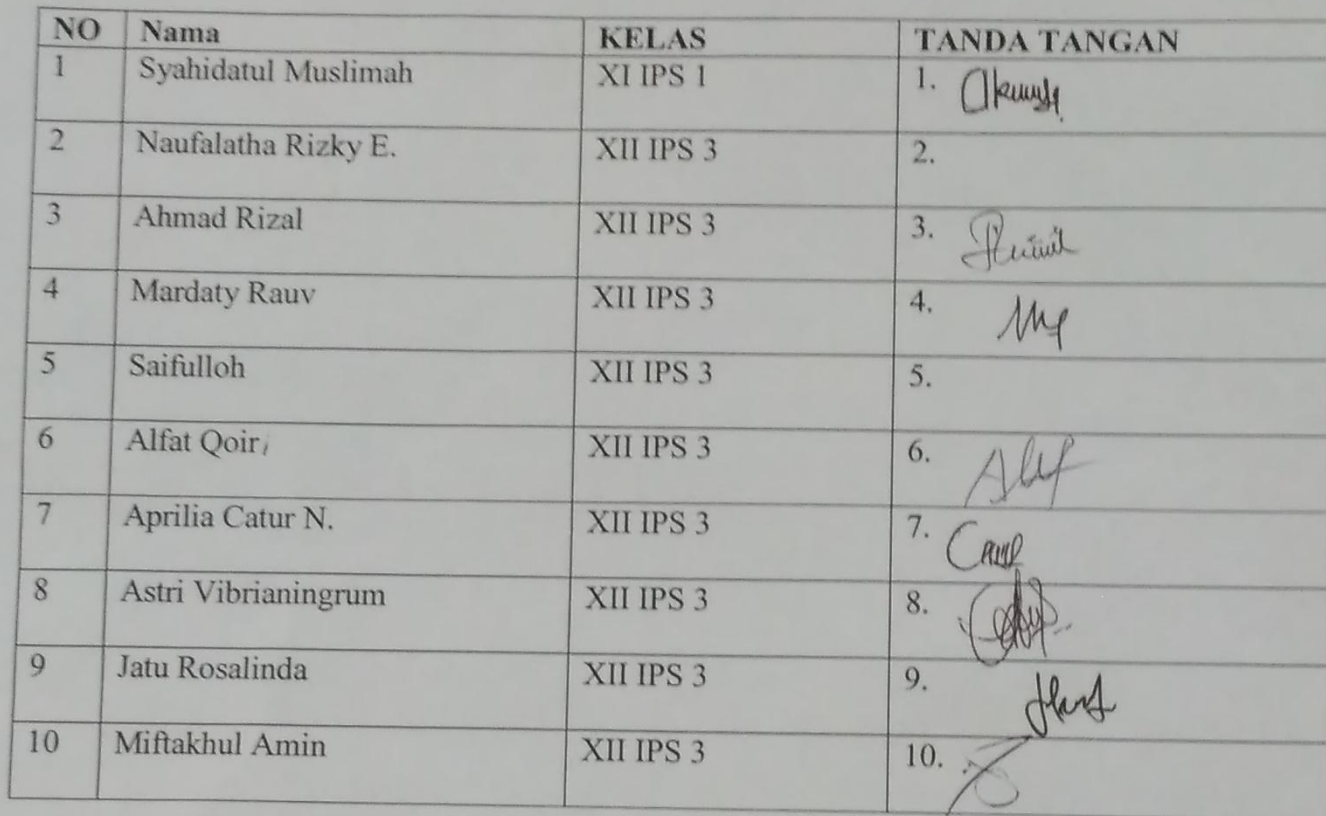 NO Nama KELAS TANDA TANGAN
1 Syahidatul Muslimah XI IPS 1 1.
2 Naufalatha Rizky E. XII IPS 3 2.
3 Ahmad Rizal XII IPS 3 3.
4 Mardaty Rauv XII IPS 3 4.
5 Saifulloh XII IPS 3 5.
6 Alfat Qoiri XII IPS 3 6.
7 Aprilia Catur N. XII IPS 3 7.
8 Astri Vibrianingrum XII IPS 3 8.
9 Jatu Rosalinda XII IPS 3 9.
10 Miftakhul Amin XII IPS 3 10.